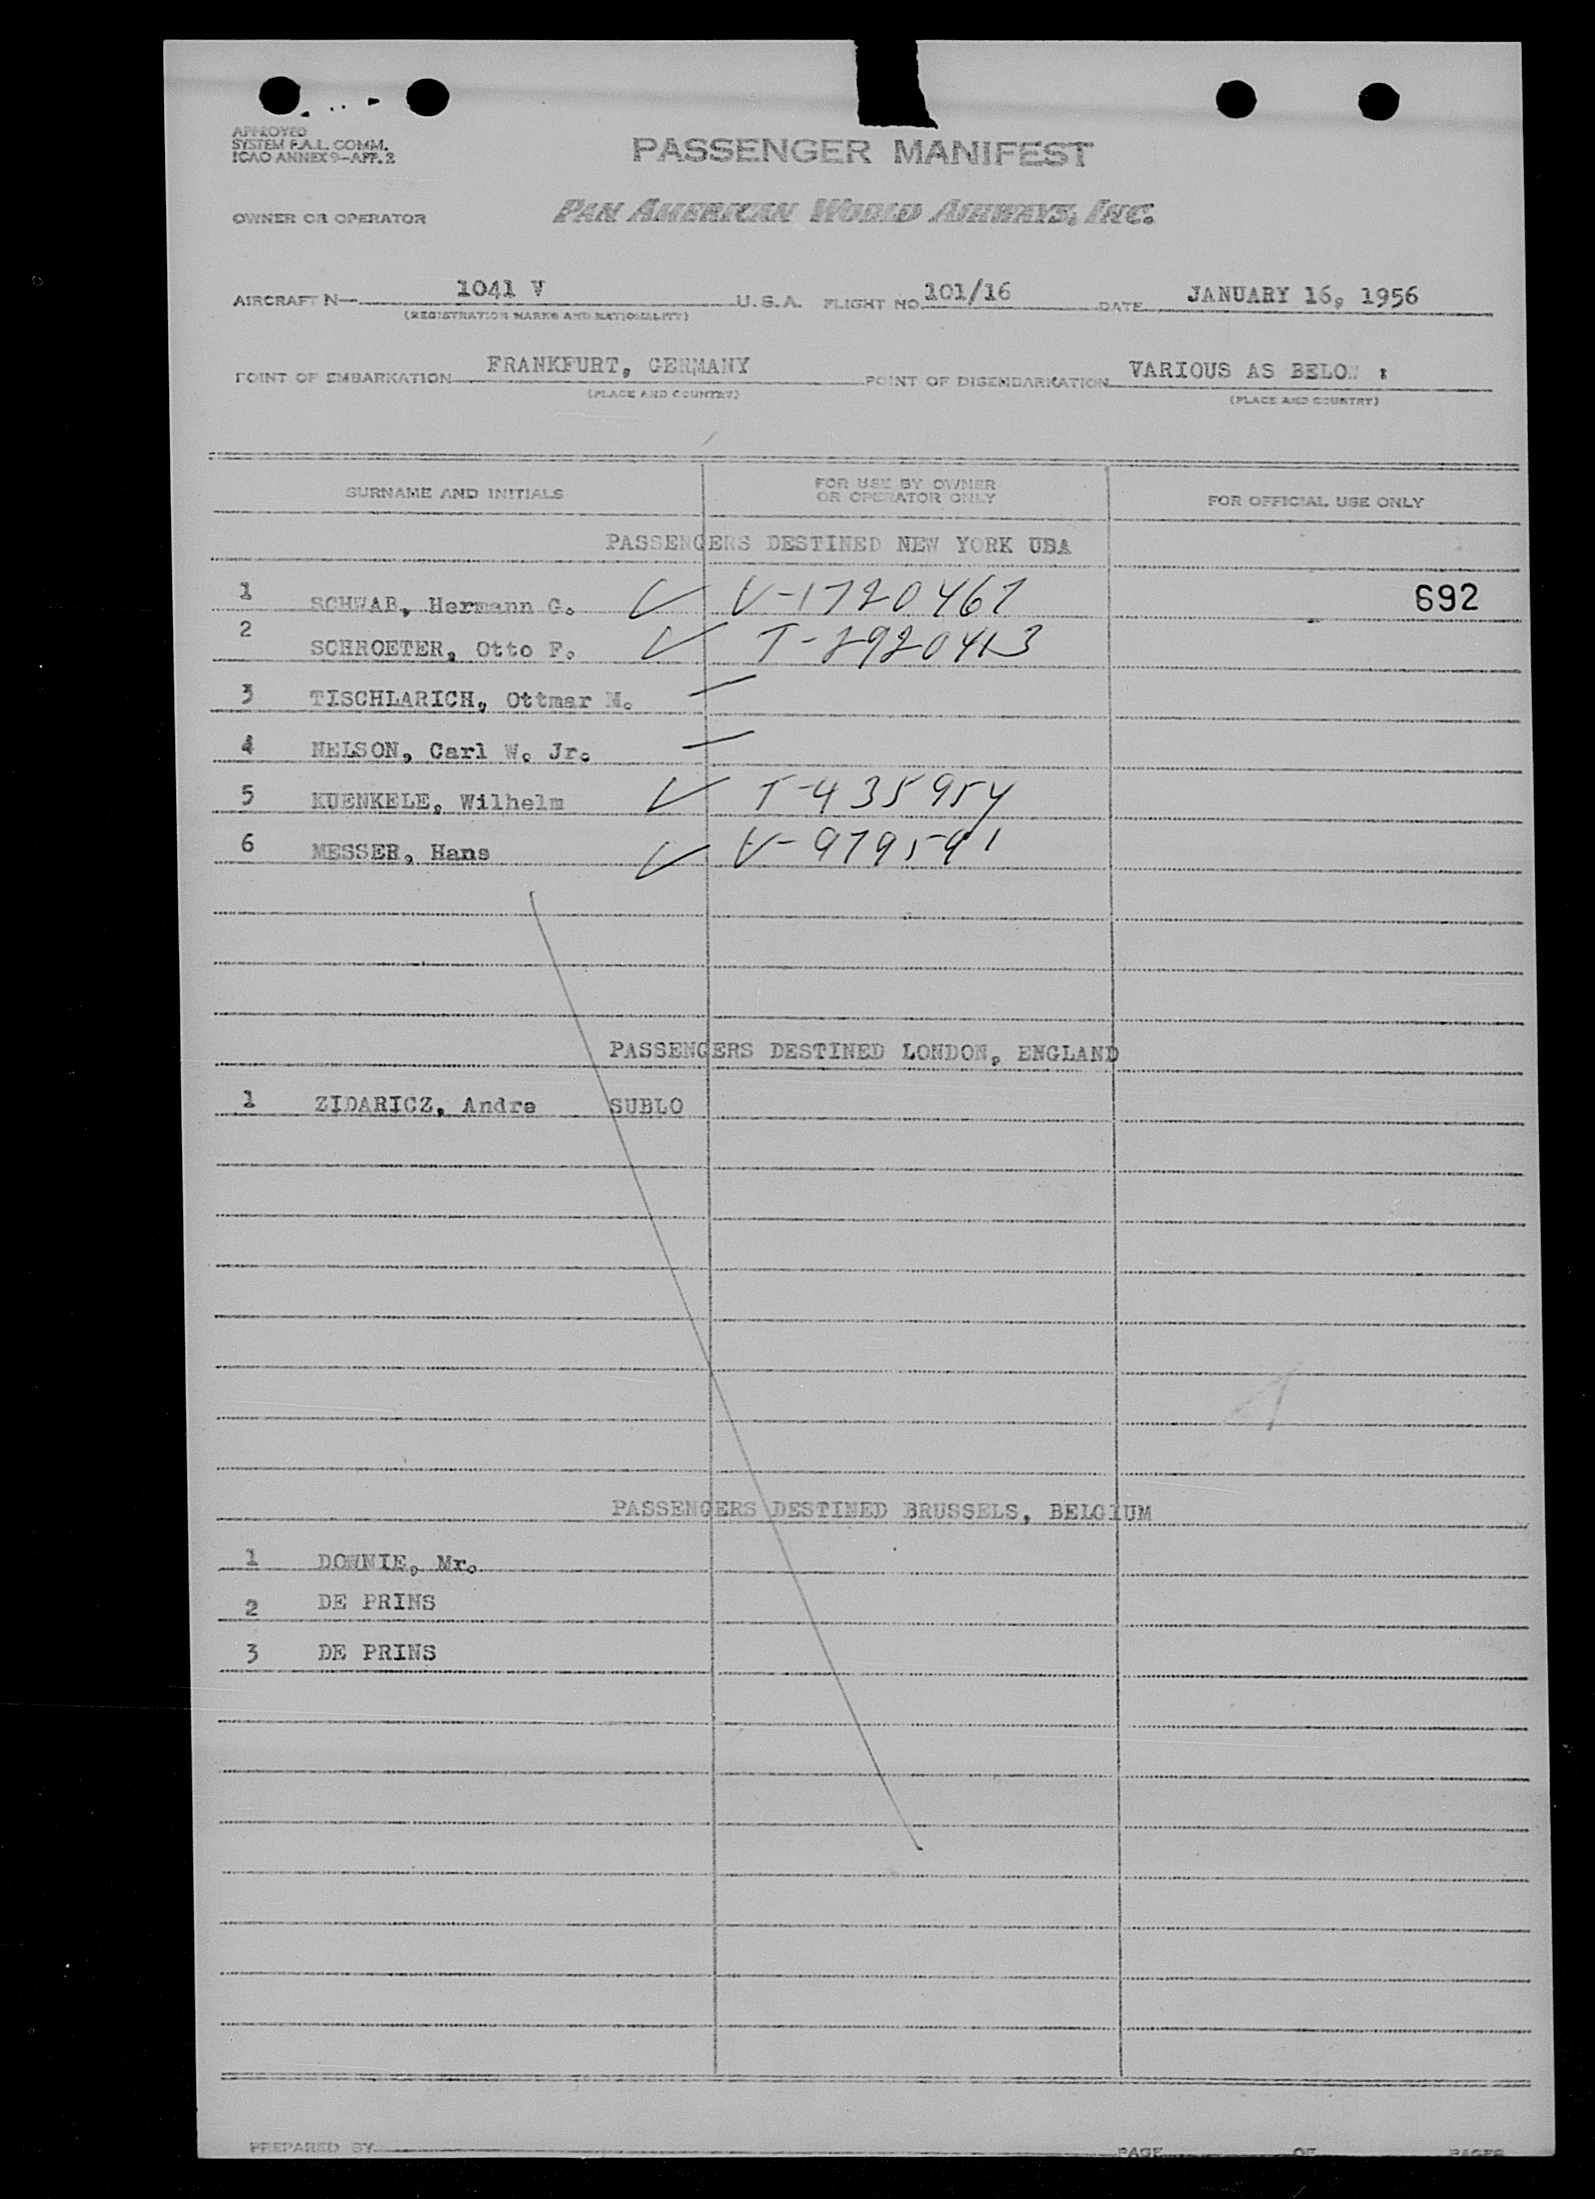 APPROVED
SYSTEM F.A.L. COMM.
ICAO ANNEX 9-APP. 2
PASSENGER MANIFEST
OWNER OR OPERATOR PAN AMERICAN WORLD AIRWAYS, INC.
AIRCRAFT N- 1041 V U.S.A. FLIGHT NO. 101/16 DATE JANUARY 16, 1956
(REGISTRATION MARKS AND NATIONALITY)
POINT OF EMBARKATION FRANKFURT, GERMANY POINT OF DISEMBARKATION VARIOUS AS BELOW :
(PLACE AND COUNTRY) (PLACE AND COUNTRY)
SURNAME AND INITIALS FOR USE BY OWNER OR OPERATOR ONLY FOR OFFICIAL USE ONLY
PASSENGERS DESTINED NEW YORK USA
1 SCHWAB, Hermann G. ✓ V-1720467 692
2 SCHROETER, Otto F. ✓ T-2920413
3 TISCHLARICH, Ottmar M. —
4 NELSON, Carl W. Jr. —
5 KUENKELE, Wilhelm ✓ T-435954
6 MESSER, Hans ✓ V-979591
PASSENGERS DESTINED LONDON, ENGLAND
1 ZIDARICZ, Andre SUBLO
PASSENGERS DESTINED BRUSSELS, BELGIUM
1 DOWNIE, Mr.
2 DE PRINS
3 DE PRINS
PREPARED BY PAGE OF PAGES